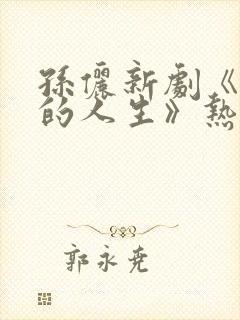 孫儷新劇《
的人生》熱
郭永堯